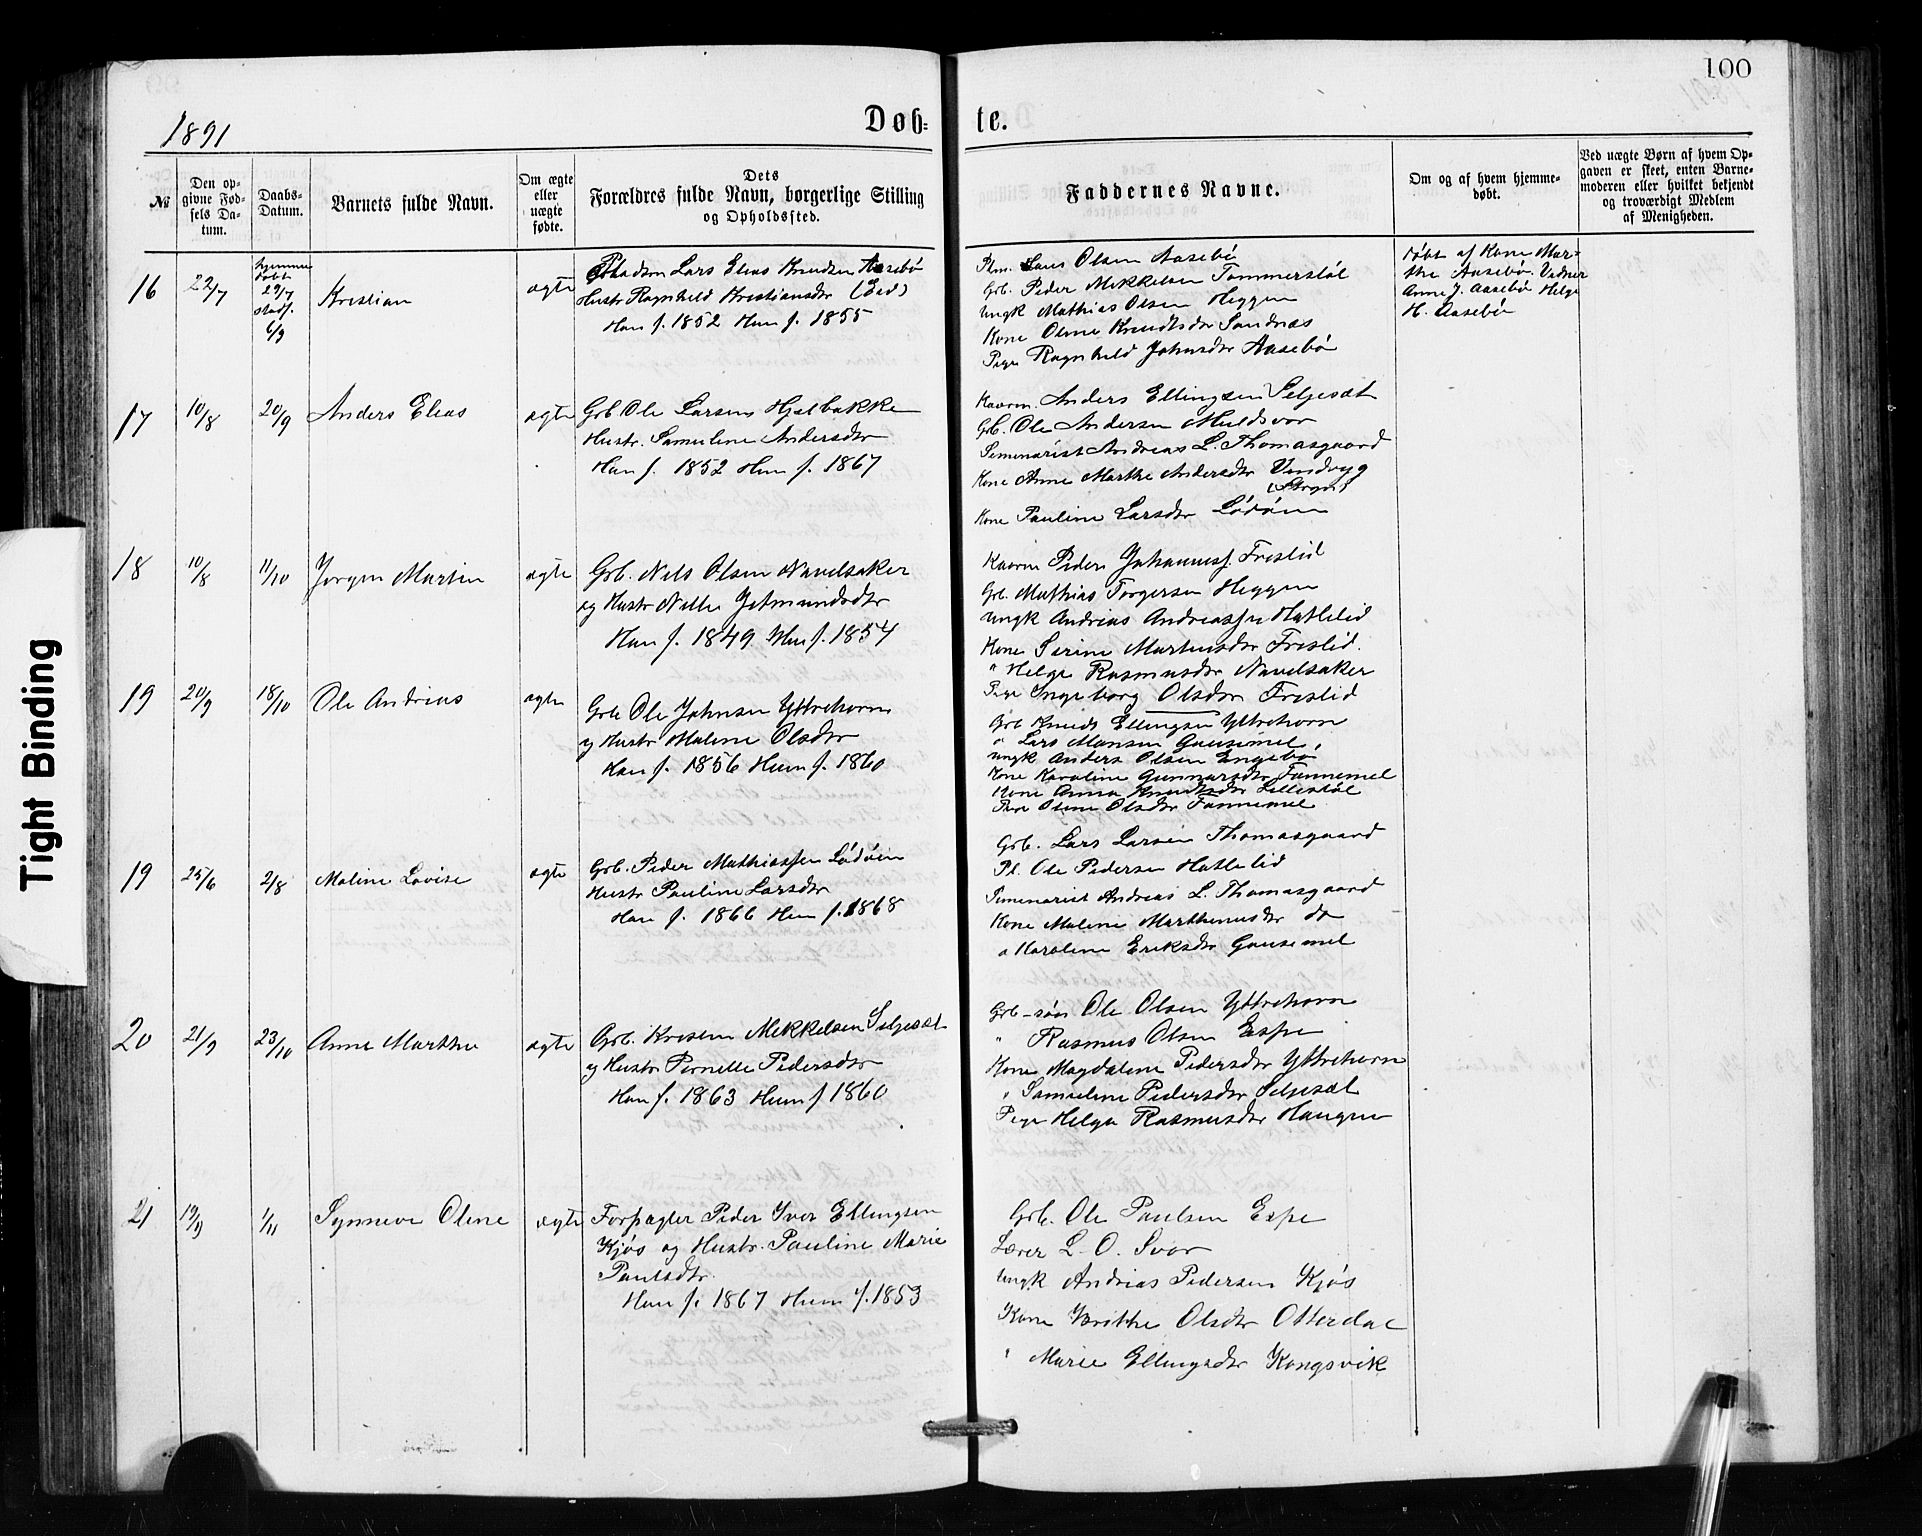 100
1891
Døb= te.
№
Den op-
givne Fød-
sels Da-
tum.
Daabs-
Datum.
Barnets fulde Navn.
Om ægte
eller
uægte
fødte.
Dets
Forældres fulde Navn, borgerlige Stilling
og Opholdssted.
Faddernes Navne.
Om og af hvem hjemme-
døbt.
Ved uægte Børn af hvem Op-
gaven er skeet, enten Barne-
moderen eller hvilket bekjendt
og troværdigt Medlem
af Menigheden.
16
22/7
hjemme
døbt
29/7
stadf.
6/9
Kristian
ægte
Lars Elias Knudsen Aasebø
Hustr Ragnhild Kristiansdr (Eid)
Han f. 1852 Hun f. 1855
Plm. Lars Olsen Aasebø
Grb. Peder Mikkelsen Tommerstøl
Ungk Mathias Olsen Heggen
Kone Oline Knudtsdr Sandnæs
Pige Ragnhild Johnsdr Aasebø
døbt af Kone Mar-
the Aasebø. Vidner
Anne J. Aasebø Helge
H. Aasebø
17
10/8
20/9
Anders Elias
ægte
Grb Ole Larsen Hjelbakke
Hustr. Samuline Andersdr
Han f. 1852 Hun f. 1867
Kaarm. Anders Ellingsen Seljesæt
Grb. Ole Andersen Muldsvor
Seminarist Andreas L. Thomasgaard
Kone Anne Marthe Andersdr Vindvig
(Stryn)
Kone Pauline Larsdr Lødøen
18
10/8
11/10
Jørgen Martin
ægte
Grb. Nils Olsen Navelsaker
og Hustr Nille Jetmundsdr
Han f. 1849 Hun f. 1854
Kaarm Peder Johannesf. Freslid
Grb. Mathias Torgersen Heggen
Ungk Andrias Andreassen Hatlelid
Kone Serine Martinusdr Freslid.
" Helge Rasmusdr Navelsaker
Pige Ingeborg Olsdr Freslid
19
20/9
18/10
Ole Andrias
ægte
Grb Ole Johnsen Yttrehorn
og Hustr Maline Olsdr
Han f. 1856 Hun f. 1860
Grb Knudt Ellingsen Yttrehorn
" Lars Monsen Gausemel,
Ungk Anders Olsen Engebø
Kone Karoline Gunnarsdr Fannemel
Kone Anna Knudtsdr Lillestøl
Pige Oline Olsdr Fannemel
19
25/6
2/8
Maline Lovise
ægte
Grb. Peder Mathiassen Lødøen
Hustr Pauline Larsdr
Han f. 1866 Hun f. 1868
Grb. Lars Larsen Thomasgaard
Pl. Ole Pedersen Hatlelid
Seminarist Andreas L. Thomasgaard
Kone Maline Marthinusdr do
" Karoline Eriksdr Gausemel
20
21/9
23/10
Anne Marthe
ægte
Grb. Kristen Mikkelsen Seljesæt
og Hustr Pernille Pedersdr
Han f. 1863 Hun f 1860
Grb-søn Ole Olsen Yttrehorn
" Rasmus Olsen Espe
Kone Magdalene Pedersdr Yttrehorn
" Samuline Pedersdr Seljesæt
Pige Helga Rasmusdr Haugen
21
19/9
1/11
Synneve Oline
ægte
Forpagter Peder Iver Ellingsen
Kjøs og Hustr. Pauline Marie
Paulsdtr.
Han f. 1867 Hun f. 1853
Grb. Ole Paulsen Espe
Lærer L. O. Svor
Ungk Andrias Pedersen Kjøs
Kone Britthe Olsdtr Otterdal
" Marie Ellingsdtr Kongsvik
Tight Binding